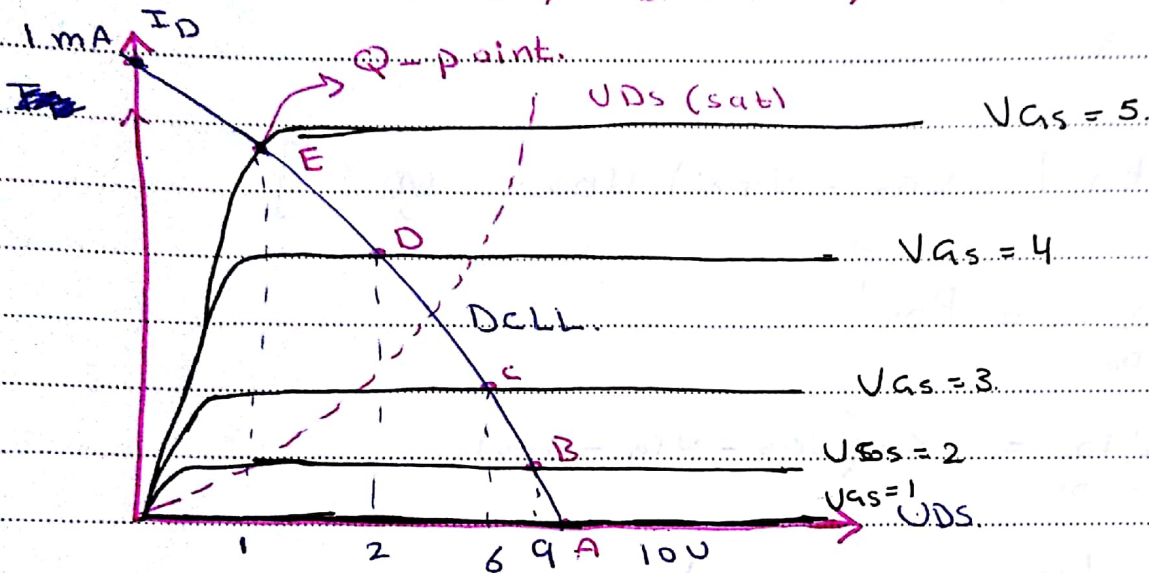 1 mA ID
Q-point.
VDs (sat)
VGs = 5.
E
D
VGs = 4
DCLL.
C
VGs = 3.
B
VGs = 2
VGs = 1
VDS.
1 2 6 9 A 10V